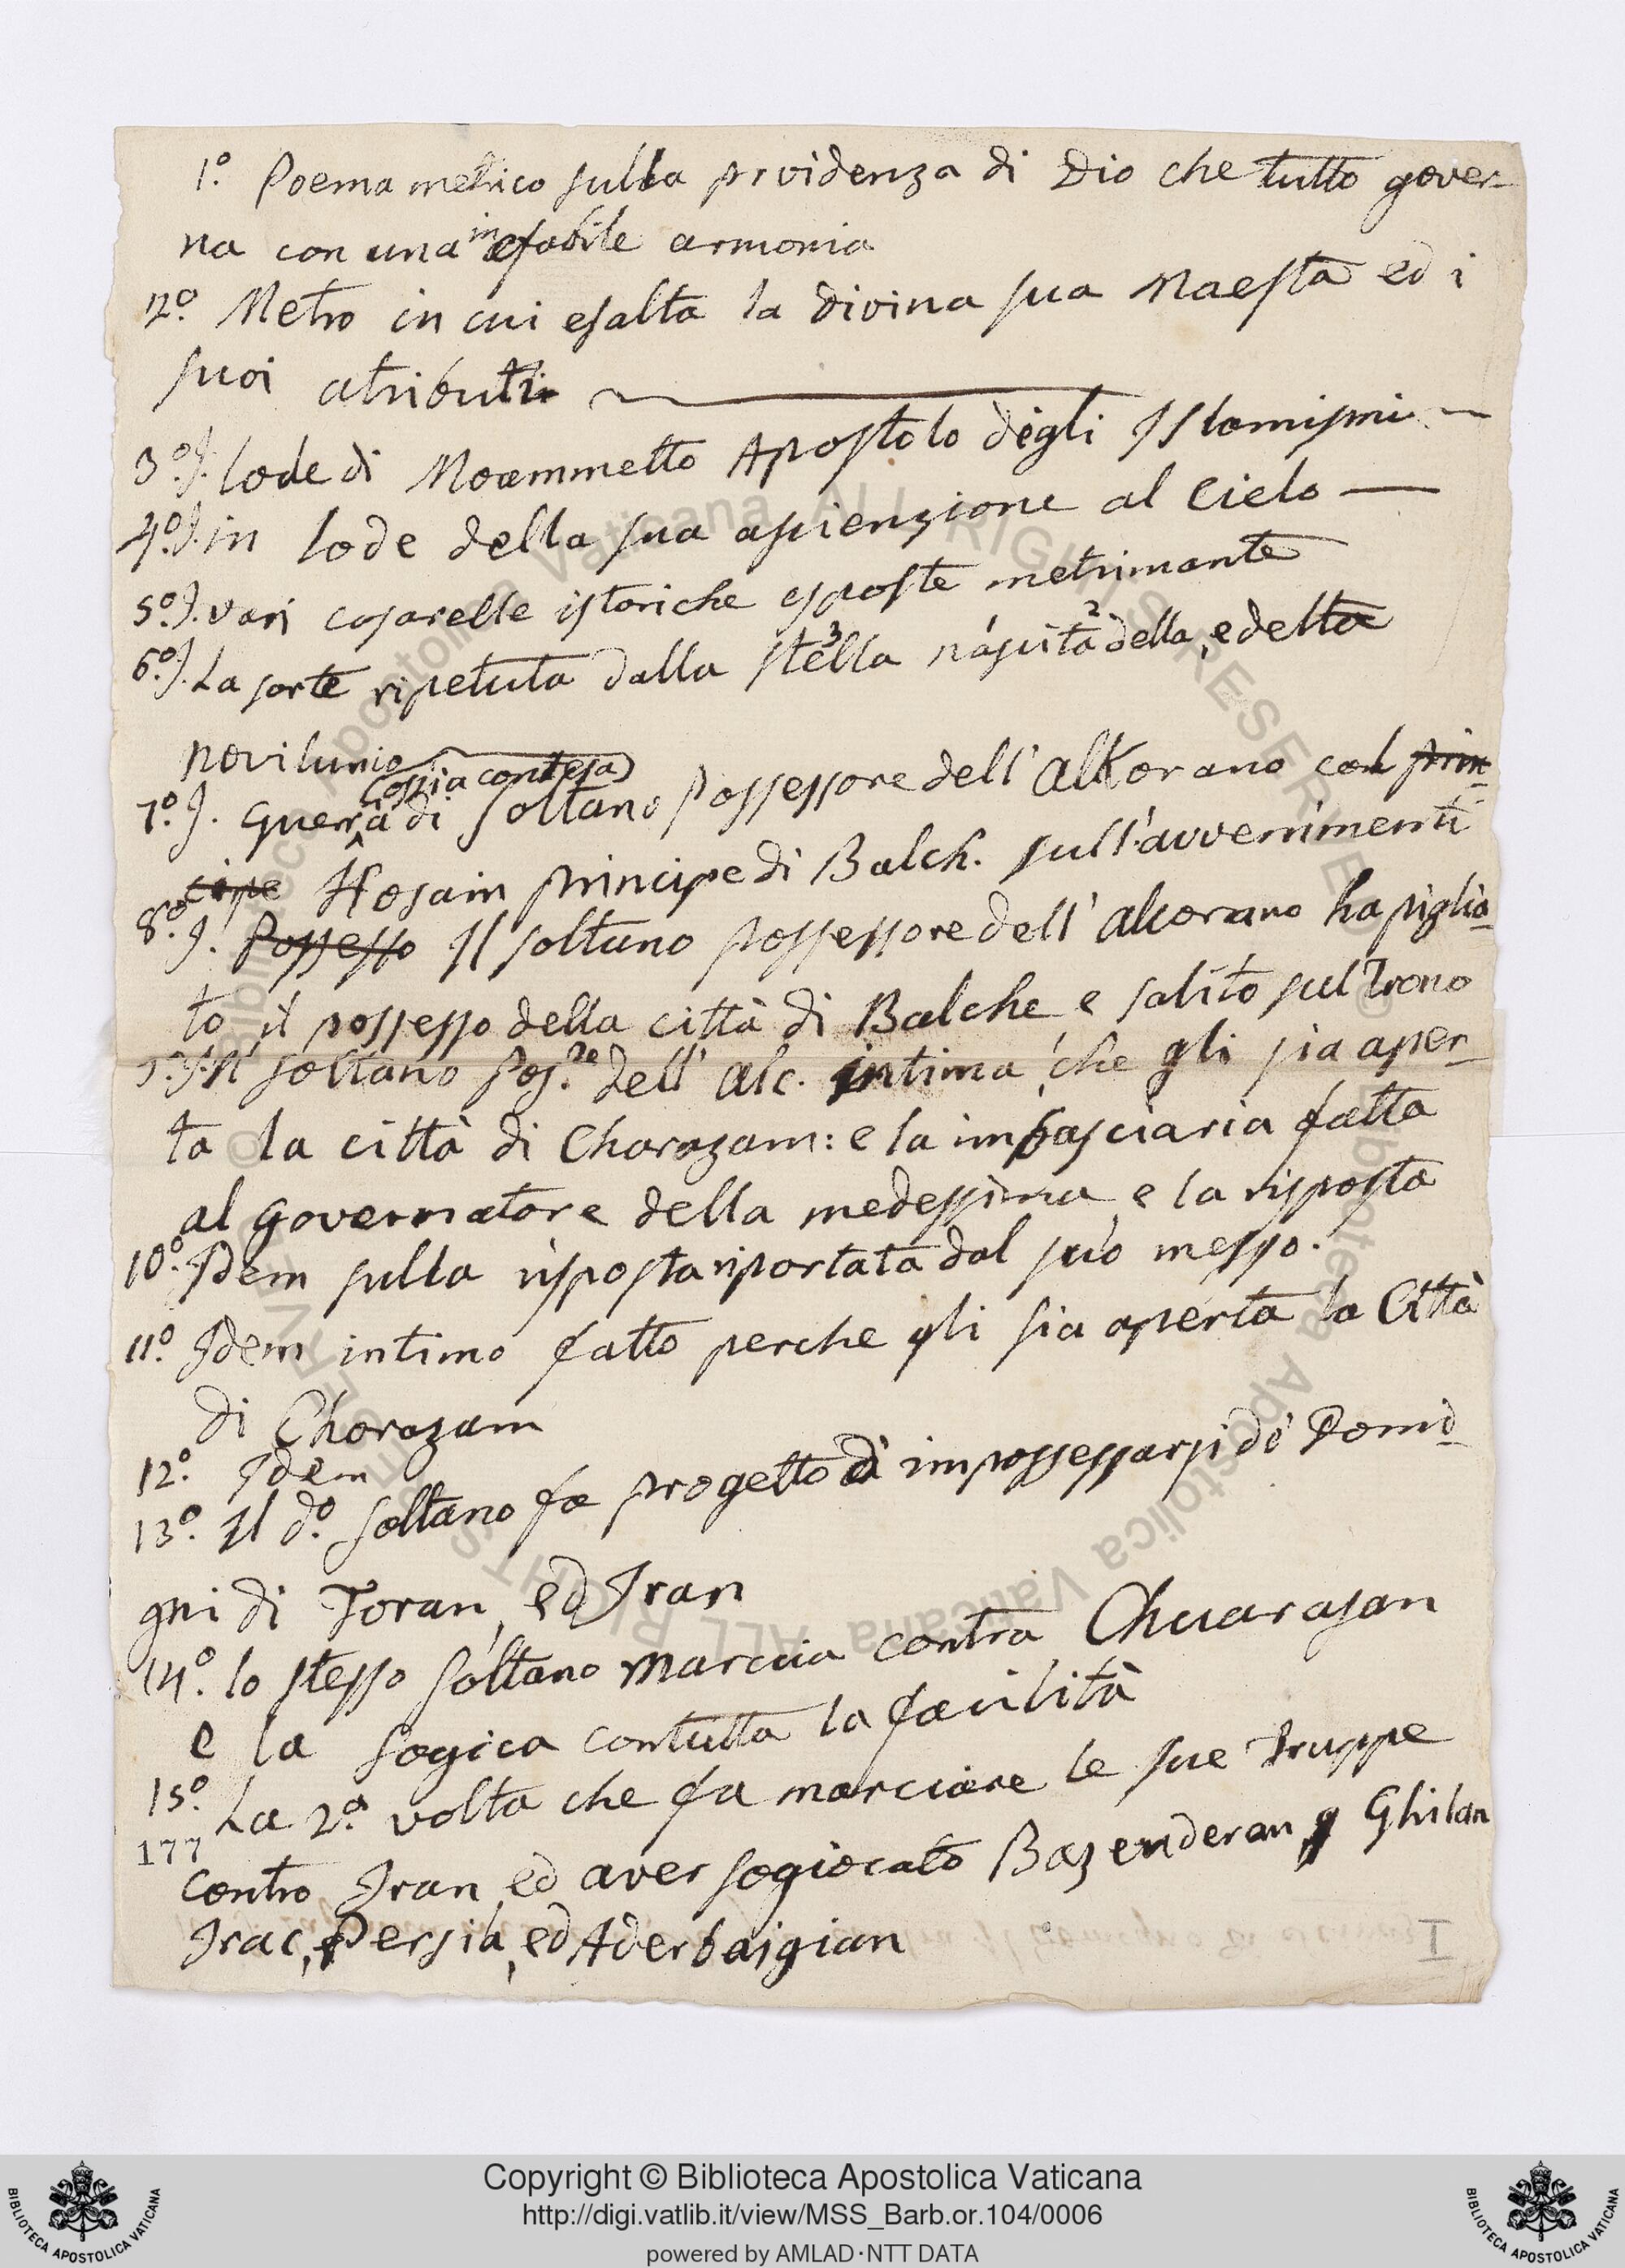 1.° Poema metrico sulla prvidenza di Dio che tutto gover-
na con una inefabile armonia
2.° Metro in cui esalta la divina sua Maesta ed i
suoi atributi
3.° J. lode di Moammetto Apostolo degli Islamismi —
4.° J. in lode della sua asscienzione al Cielo —
5.° J. vari cosarelle istoriche esposte metrimante
6.° J. La sorte ripetuta dalla stella nascita della, e detta
novilunio
(ossia contesa)
7.° J. Guerra di Soltano possessore dell' alKorano col prin-
cipe Hosain principe di Balch. sull'avvenimenti
8.° J. Possesso Il soltano possessore dell' alcorano ha piglia-
to il possesso della città di Balche e salito sul Trono
J. Il soltano Pos.re dell' alc. intima che gli sia aper-
ta la città di Charazam: e la imbasciaria fatta
al Governatore della medessima e la risposta
10.° Idem sulla risposta riportata dal suo messo.
11.° Idem intimo fatto perche gli sia aperta la Città
di Chorazam
12.° Idem
13.° Il d.° soltano fa progetto di impossessarsi di Domi-
gni di Toran, ed Iran
14.° lo stesso soltano marccia contra Chuarasan
e la sogica contutta la facilità
15.° La 2.a volta che fa marciare le sue Truppe
177
contro Iran ed aver sogiocato Bazenderan, Ghilan
Irac, Persia, ed Aderbaigian
I
Biblioteca Apostolica Vaticana ALL RIGHTS RESERVED ©
Biblioteca Apostolica Vaticana ALL RIGHTS RESERVED ©
Copyright © Biblioteca Apostolica Vaticana
http://digi.vatlib.it/view/MSS_Barb.or.104/0006
powered by AMLAD·NTT DATA
BIBLIOTECA APOSTOLICA VATICANA
BIBLIOTECA APOSTOLICA VATICANA